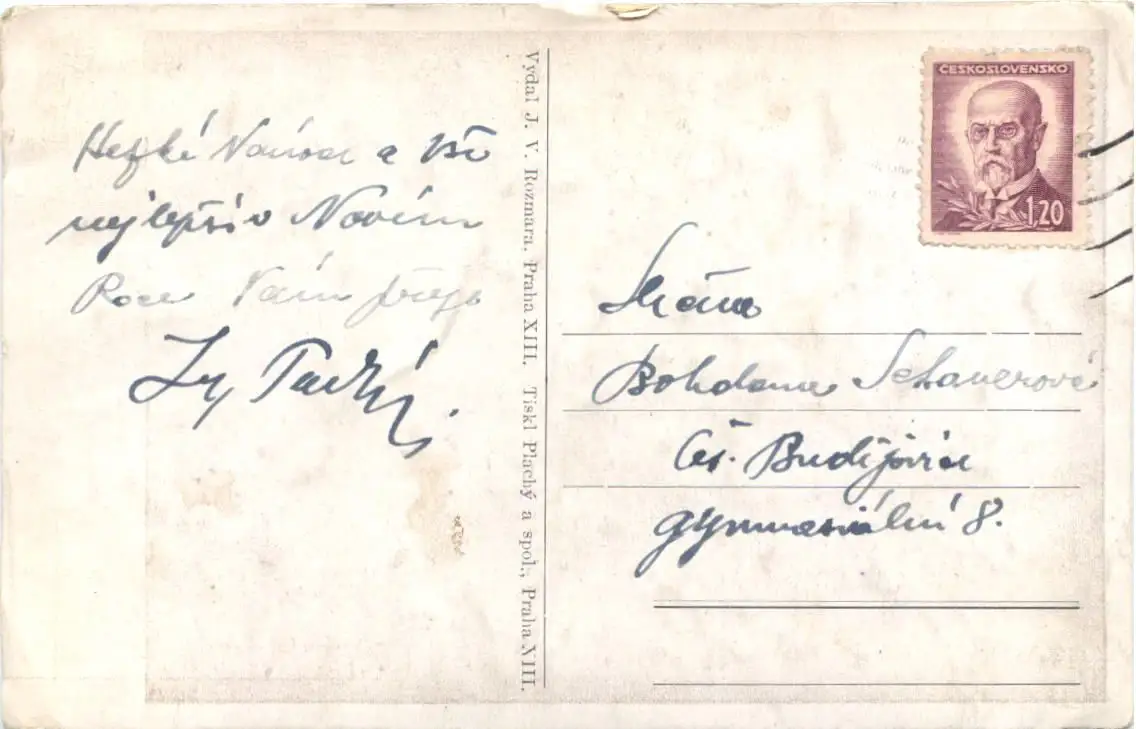 Hezké Vánoce a vše
nejlepší v Novém
Roce Vám přeje
Vydal J. V. Rozmara. Praha XIII. Tiskl Plachý a spol., Praha XIII.
ČESKOSLOVENSKO
1,20
Bohdana
Čes. Budějovice
Gymnasiální 8.